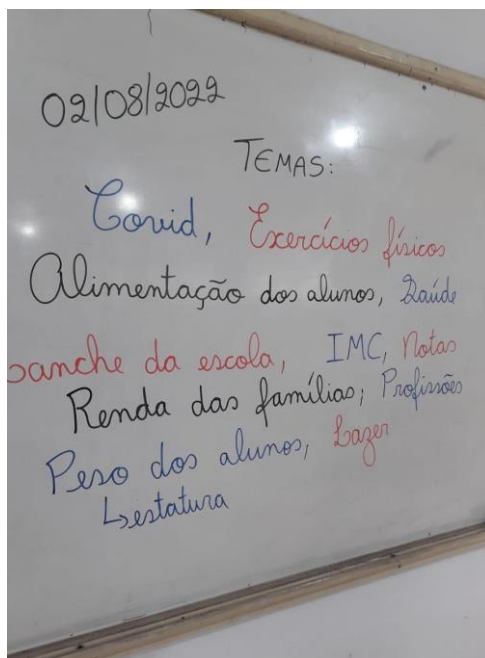 02/08/2022
TEMAS:
Covid, Exercícios físicos
Alimentação dos alunos, Saúde
Lanche da escola, IMC, Notas
Renda das famílias; Profissões
Peso dos alunos, Lazer
↳estatura